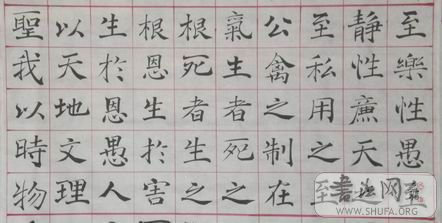 至樂性愚至
靜性廉天
至私用之至
公禽之制在
氣生者死之
根死者生之
根恩生於害
生於恩愚人
以天地文理
聖我以時物
书法网
WWW.SHUFA.ORG